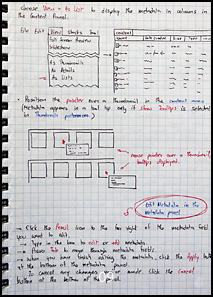 Choose View > As List to display the metadata in columns in
the Content Panel.
File Edit View Stacks
Content
Full Screen Preview
Slideshow
As Thumbnails
As Details
As List
Position the pointer over a thumbnail in the content area
(Metadata appears in a tool tip only if Show Tooltips is selected
in Thumbnails preferences.)
mouse pointer over a thumbnail
tooltips displayed.
Edit Metadata in
the metadata panel
Click the Pencil icon to the far right of the metadata field
you want to edit.
Type in the box to edit or add metadata
Press Tab to move through metadata fields
When you have finish editing the metadata, click the Apply button
at the bottom of the metadata panel.
To Cancel any changes you made, click the Cancel
button at the bottom of the panel.